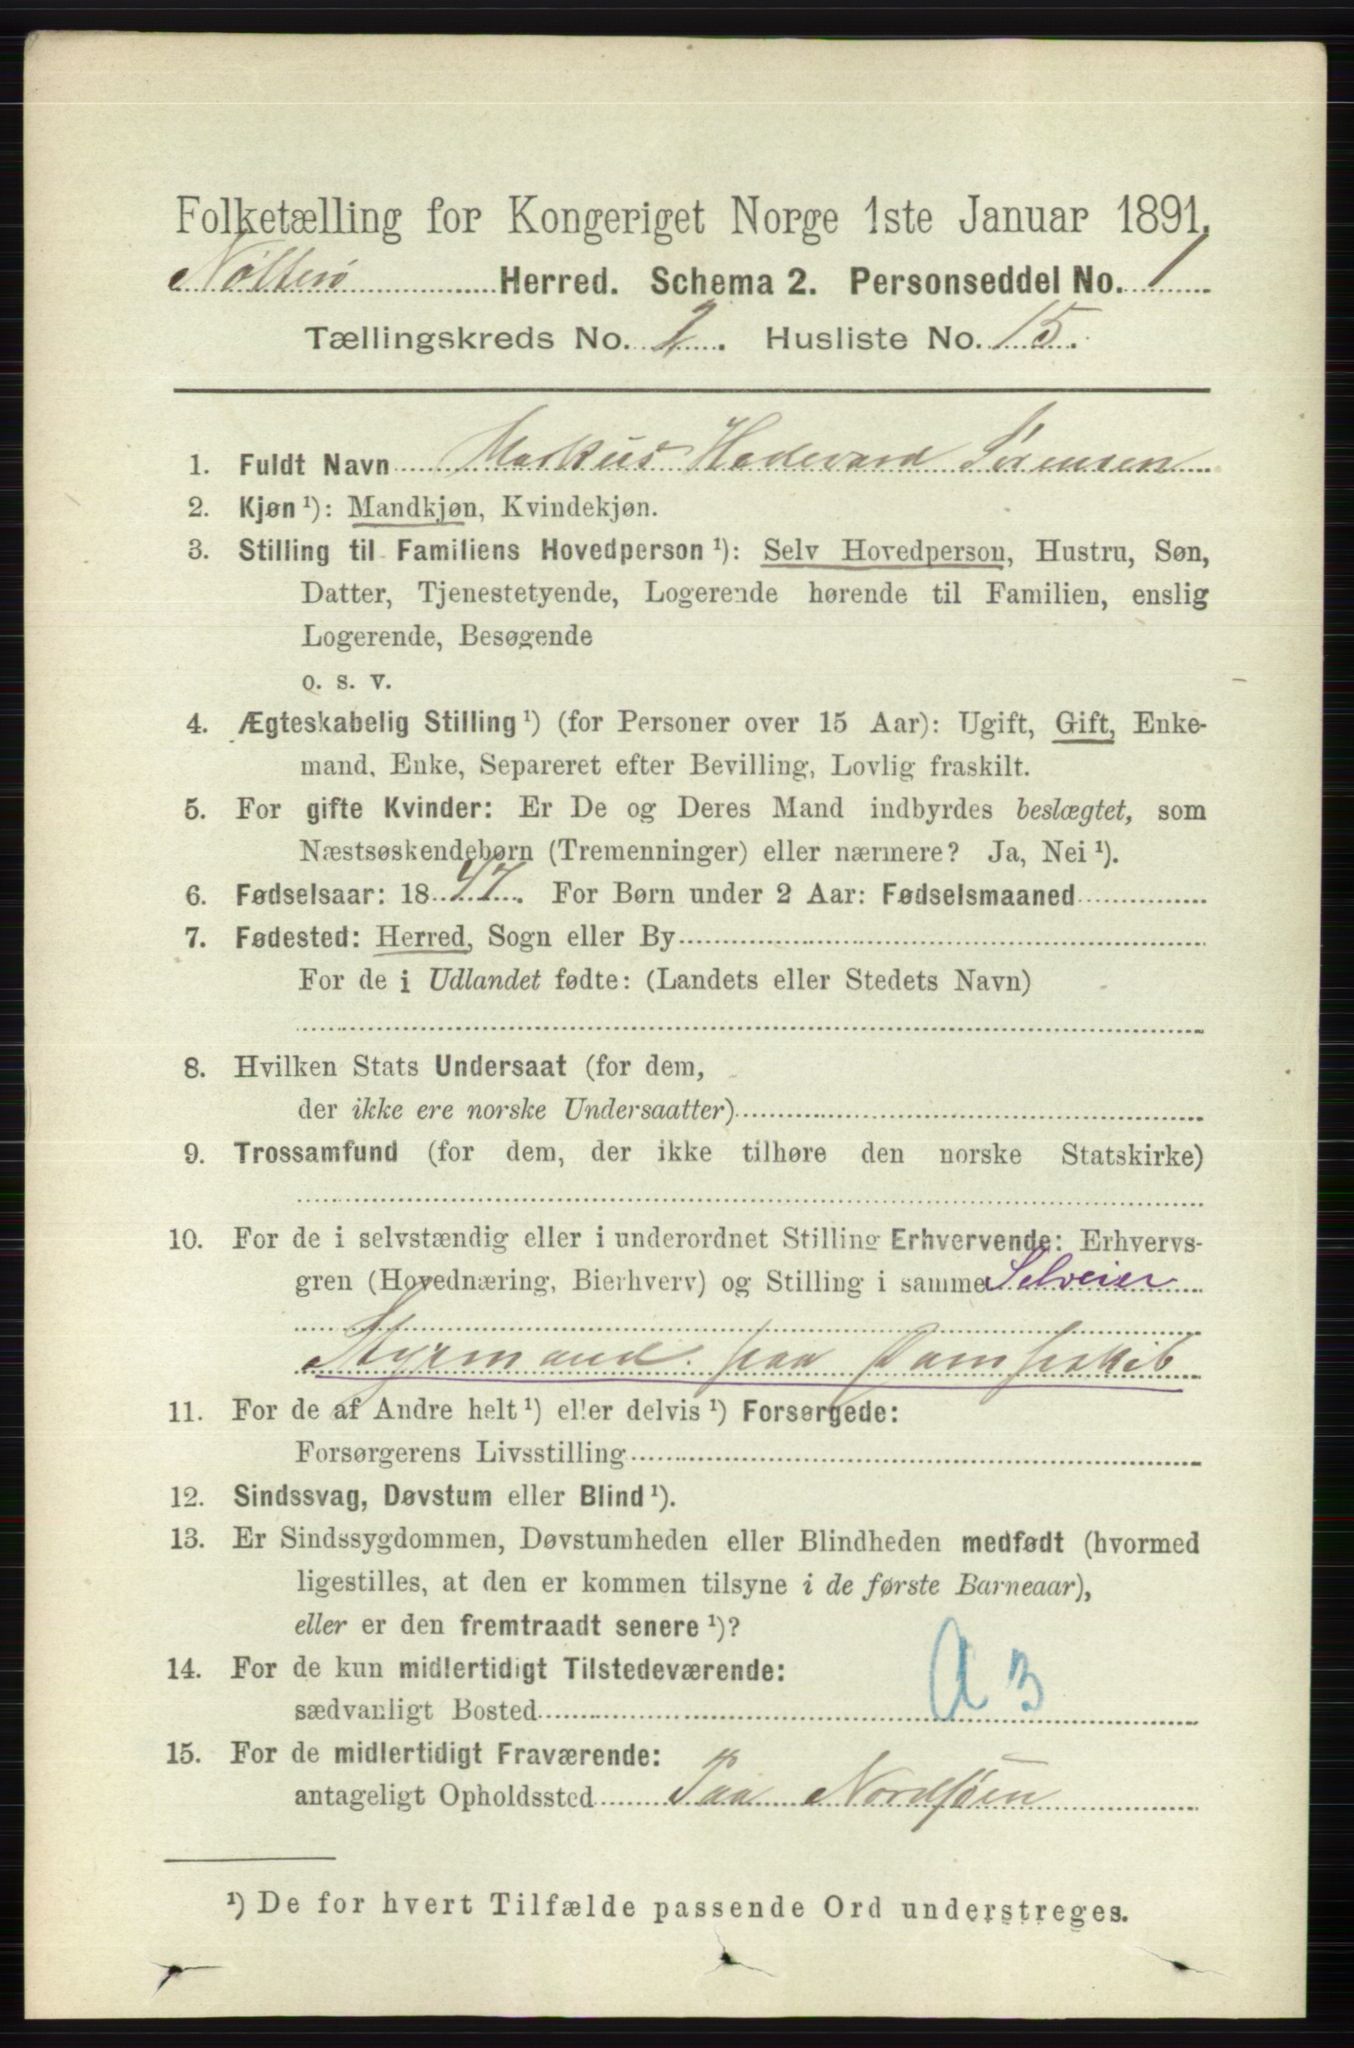 Folketælling for Kongeriget Norge 1ste Januar 1891.
Nøtterø Herred. Schema 2. Personseddel No. 1
Tællingskreds No. 2. Husliste No. 15.
1. Fuldt Navn Markus Hadevard Sørensen
2. Kjøn ¹): Mandkjøn, Kvindekjøn.
3. Stilling til Familiens Hovedperson ¹): Selv Hovedperson, Hustru, Søn,
Datter, Tjenestetyende, Logerende hørende til Familien, enslig
Logerende, Besøgende
o. s. v.
4. Ægteskabelig Stilling ¹) (for Personer over 15 Aar): Ugift, Gift, Enke-
mand, Enke, Separeret efter Bevilling, Lovlig fraskilt.
5. For gifte Kvinder: Er De og Deres Mand indbyrdes beslægtet, som
Næstsøskendebørn (Tremenninger) eller nærmere? Ja, Nei ¹).
6. Fødselsaar: 1847. For Børn under 2 Aar: Fødselsmaaned
7. Fødested: Herred, Sogn eller By
For de i Udlandet fødte: (Landets eller Stedets Navn)
8. Hvilken Stats Undersaat (for dem,
der ikke ere norske Undersaatter)
9. Trossamfund (for dem, der ikke tilhøre den norske Statskirke)
10. For de i selvstændig eller i underordnet Stilling Erhvervende: Erhvervs-
gren (Hovednæring, Bierhverv) og Stilling i samme Selveier
Styrmand paa Dampskib
11. For de af Andre helt ¹) eller delvis ¹) Forsørgede:
Forsørgerens Livsstilling
12. Sindssvag, Døvstum eller Blind ¹).
13. Er Sindssygdommen, Døvstumheden eller Blindheden medfødt (hvormed
ligestilles, at den er kommen tilsyne i de første Barneaar),
eller er den fremtraadt senere ¹)?
14. For de kun midlertidigt Tilstedeværende:
sædvanligt Bosted
A 3
15. For de midlertidigt Fraværende:
antageligt Opholdssted Paa Nordsøen
¹) De for hvert Tilfælde passende Ord understreges.